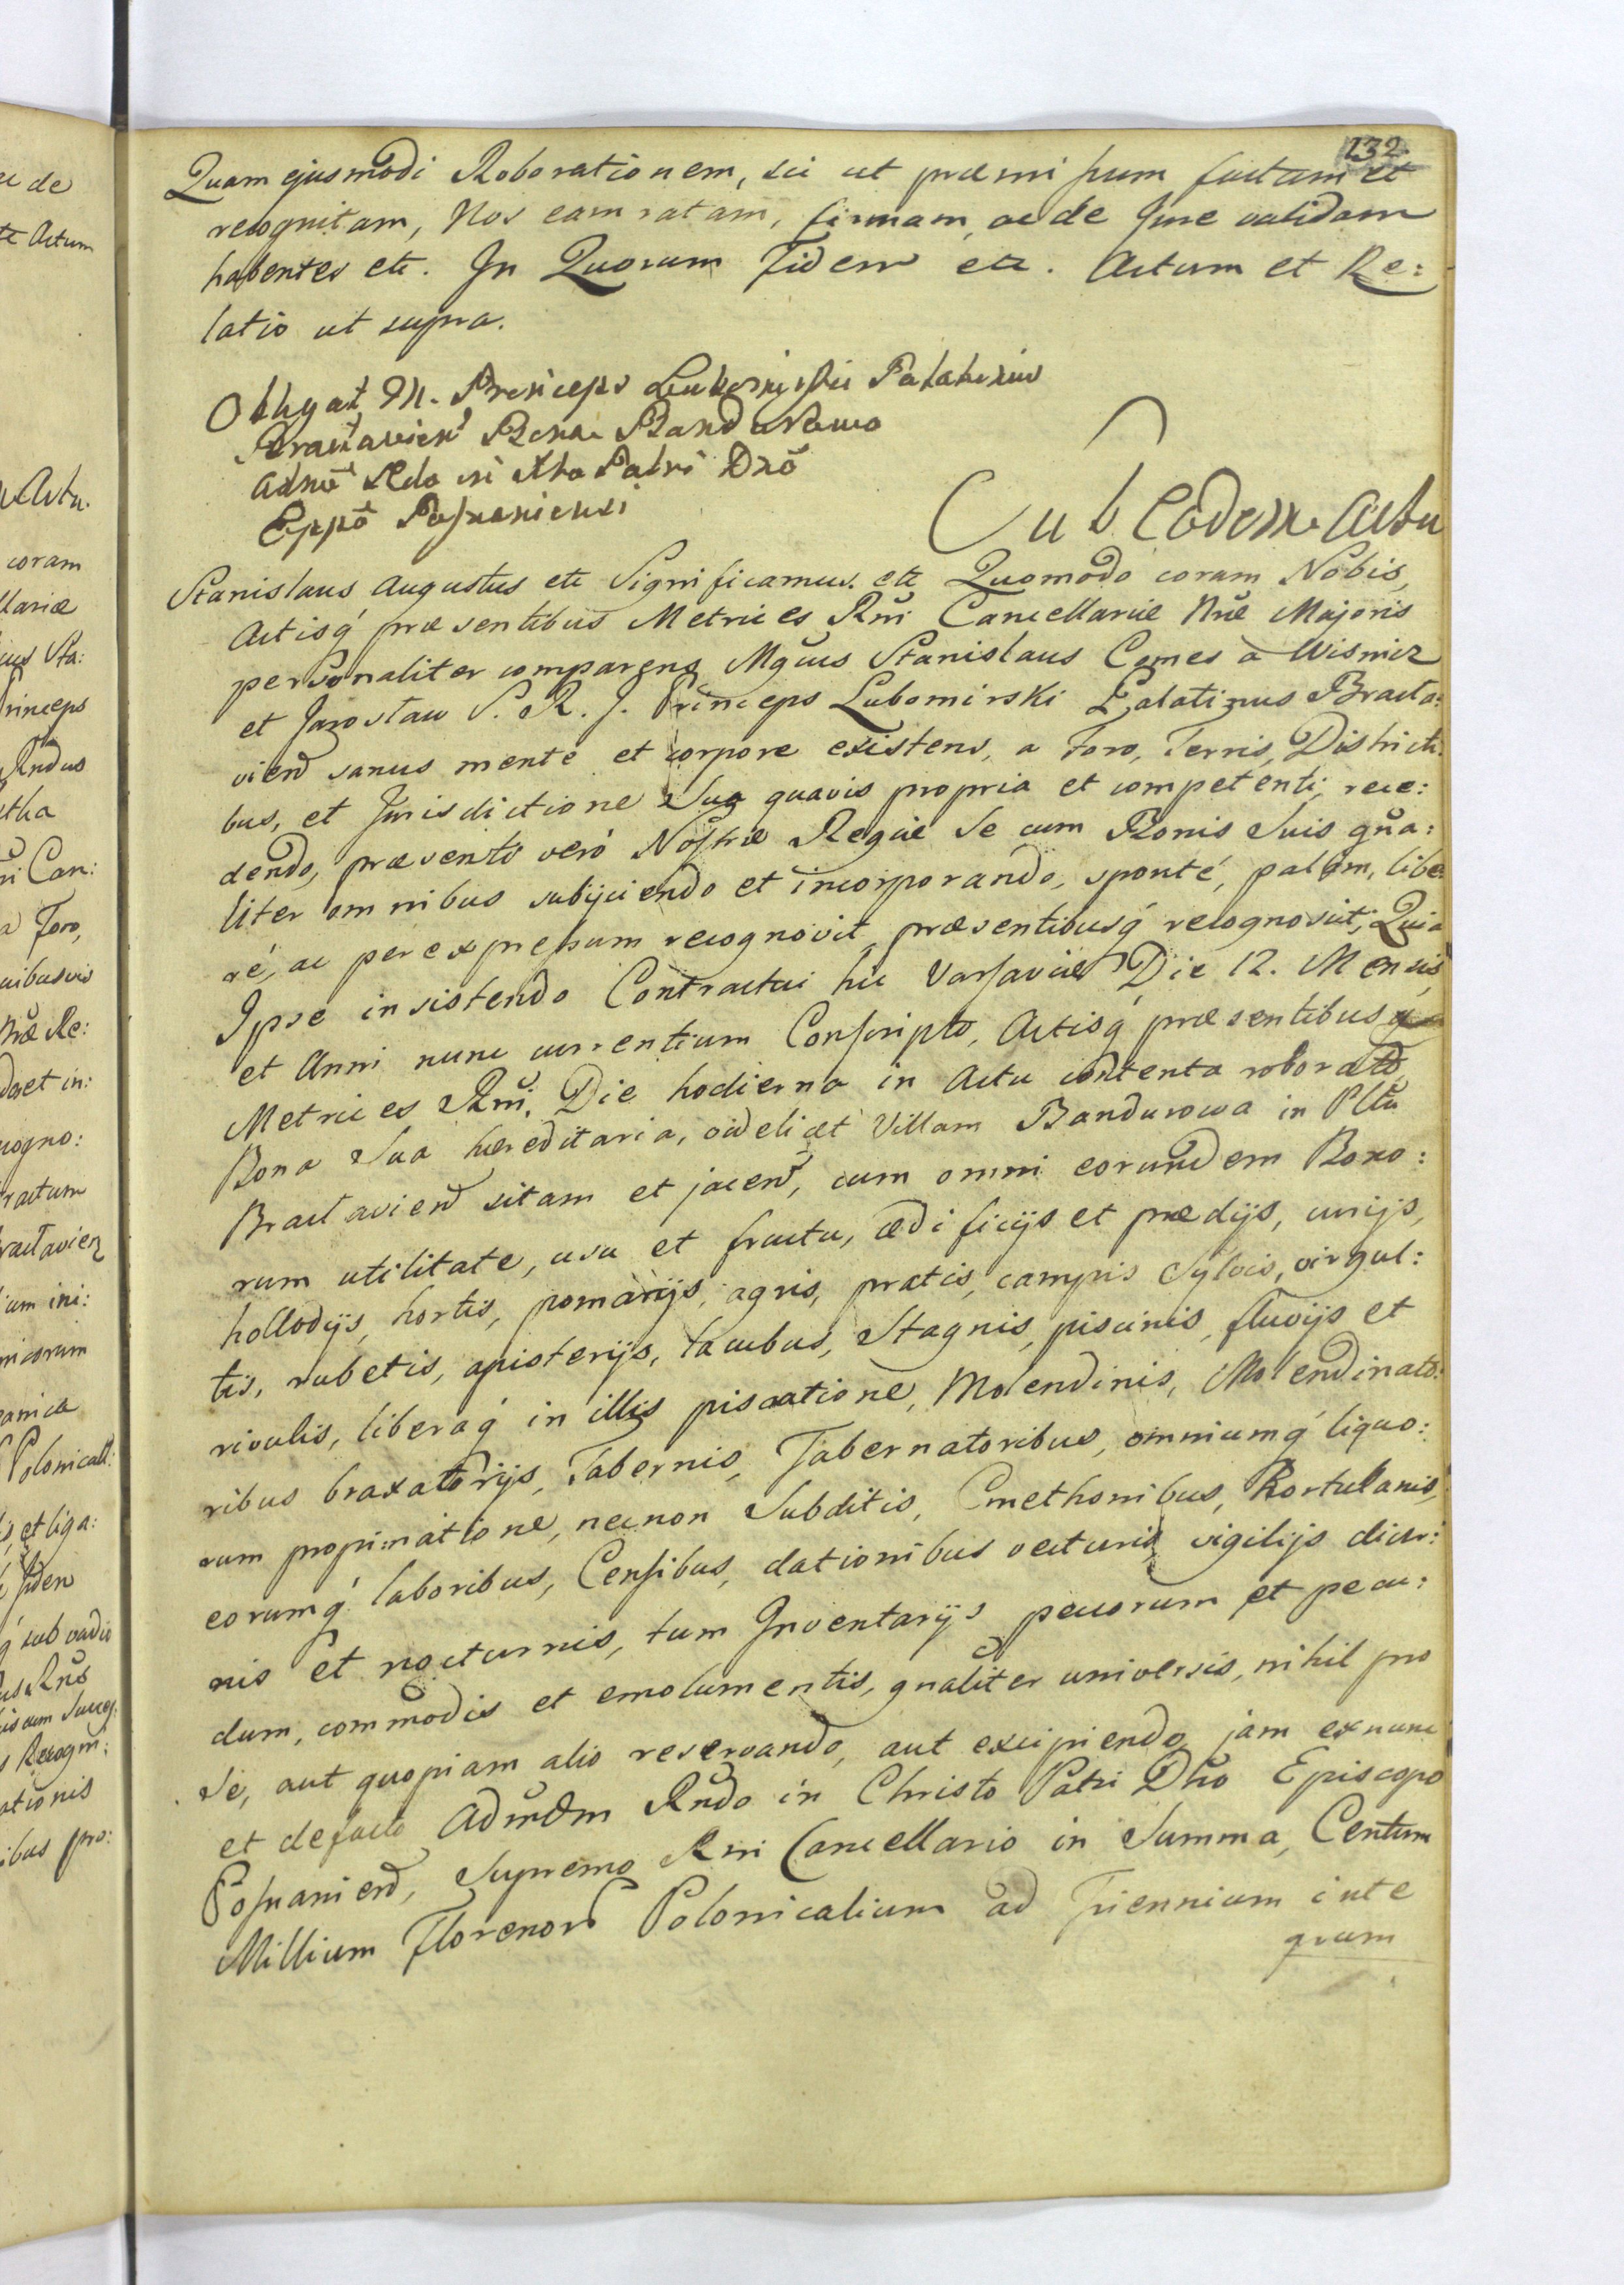 132
Quam ejusmodi Roborationem, sic ut præmissum factam et
recognitam, Nos eam ratam, firmam, ac de Jure validam
habentes etc. In Quorum Fidem etc. Actum et Re:
latio ut supra.
Obligat M. Princeps Lubomirski Palatinus
Braclavien Bona Bandurowa
Admo Rdo in Xto Patri Dno
Eppo Posnaniensi
Sub Eodem Actu
Stanislaus Augustus etc Significamus. etc Quomodo coram Nobis,
Actisq́ præsentibus Metrices Rni Cancellariæ Nræ Majoris
personaliter comparens Mgcus Stanislaus Comes à Wisnicz
et Jarosław S. R. J. Princeps Lubomirski Palatinus Bracla:
vien sanus mente et corpore existens, a Foro, Terris, Districti:
bus, et Jurisdictione Sua quavis propria et competenti, rece:
dendo, præsenti veró Nostræ Regiæ Se cum Bonis Suis gña:
liter omnibus subijciendo et incorporando, sponté, palam, libe:
ré, ac per expressum recognovit, præsentibusq́ recognoscit; Quia
Ipse insistendo Contractui hic Varsaviæ Die 12. Mensis
et Anni nunc currentium Conscripto, Actisq́ præsentibus
Metrices Rni, Die hodierna in Actu contenta roborato,
Bona Sua hæreditaria, videlicet Villam Bandurowa in Pltu
Braclavien sitam et jacen, cum omni eorundem Bono:
rum utilitate, usu et fructu, ædificijs et prædijs, curijs,
hollodijs, hortis, pomarijs, agris, pratis, campis Sylvis, virgul:
tis, rubetis, apisterijs, lacubus, Stagnis, piscinis, fluvijs et
rivulis, liberaq́ in illis piscatione, Molendinis, Molendinato:
ribus braxatorijs, Tabernis, Tabernatoribus, omniumq́ liquo:
rum propinatione, necnon Subditis, Cmethonibus, Hortulanis,
eorumq́ laboribus, Censibus, dationibus vecturis, vigilijs diur:
nis et nocturnis, tum Inventarijs pecorum et pecu:
dum, commodis et emolumentis, gnaliter universis, nihil pro
Se, aut quopiam alio reservando, aut excipiendo, jam exnunc
et defacto Admdm Rndo in Christo Patri Dño Episcopo
Posnanien, Supremo Rni Cancellario in Summa, Centum
Millium Florenor Polonicalium ad Triennium inte
grum